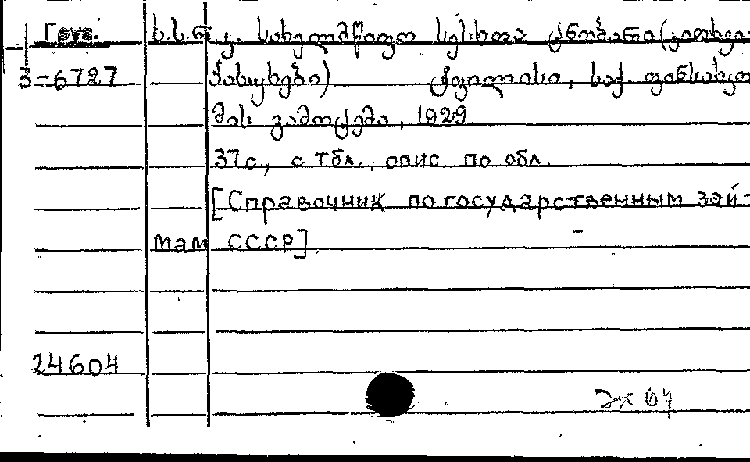 Груз. ს.ს.რ.კ. სახელმწიფო სესხთა ცნობარი (კითხვა-
3-6727 პასუხები) ტფილისი, საქ. ფინსახკო
მის გამოცემა, 1929
37 с., с табл., опис по обл.
[Справочник по государственным зай-
мам СССР]
24604